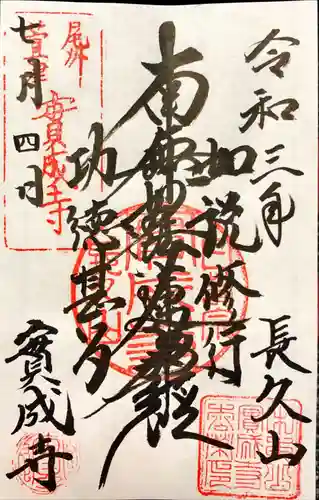 令和三年
長久山
如説修行
南無妙法蓮華経
功徳甚多
七月四日
實成寺
尾州
萱津
實成寺